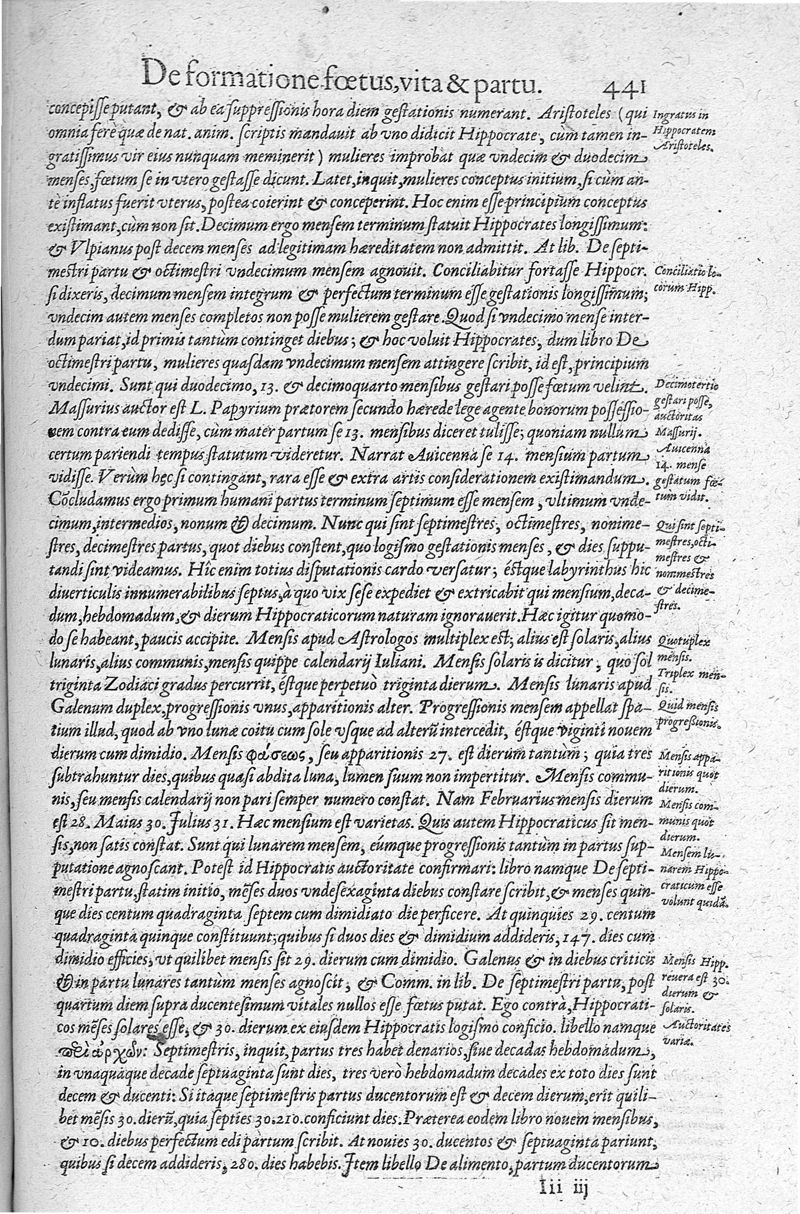 De formatione fœtus, vita & partu. 441
concepisse putant, & ab ea suppressionis hora diem gestationis numerant. Aristoteles (qui
omnia fere quæ de nat. anim. scriptis mandauit ab vno didicit Hippocrate, cùm tamen in-
gratissimus vir eius nunquam meminerit) mulieres improbat quæ vndecim & duodecim
menses, fœtum se in vtero gestasse dicunt. Latet, inquit, mulieres conceptus initium, si cùm an-
tè inflatus fuerit vterus, postea coierint & conceperint. Hoc enim esse principium conceptus
existimant, cùm non sit. Decimum ergo mensem terminum statuit Hippocrates longissimum:
& Vlpianus post decem menses ad legitimam hæreditatem non admittit. At lib. De septi-
mestri partu & octimestri vndecimum mensem agnouit. Conciliabitur fortasse Hippocr.
si dixeris, decimum mensem integrum & perfectum terminum esse gestationis longissimum;
vndecim autem menses completos non posse mulierem gestare. Quod si vndecimo mense inter-
dum pariat, id primis tantùm continget diebus; & hoc voluit Hippocrates, dum libro De
octimestri partu, mulieres quasdam vndecimum mensem attingere scribit, id est, principium
vndecimi. Sunt qui duodecimo, 13. & decimoquarto mensibus gestari posse fœtum velint.
Massurius auctor est L. Papyrium prætorem secundo hærede lege agente bonorum possessio-
nem contra eum dedisse, cùm mater partum se 13. mensibus diceret tulisse; quoniam nullum
certum pariendi tempus statutum videretur. Narrat Auicenna se 14. mensium partum
vidisse. Verùm hęc si contingant, rara esse & extra artis considerationem existimandum.
Cõcludamus ergo primum humani partus terminum septimum esse mensem, vltimum vnde-
cimum, intermedios, nonum & decimum. Nunc qui sint septimestres, octimestres, nonime-
stres, decimestres partus, quot diebus constent, quo logismo gestationis menses, & dies suppu-
tandi sint videamus. Hîc enim totius disputationis cardo versatur; éstque labyrinthus hic
diuerticulis innumerabilibus septus, à quo vix sese expediet & extricabit qui mensium, deca-
dum, hebdomadum, & dierum Hippocraticorum naturam ignorauerit. Hæc igitur quomo-
do se habeant, paucis accipite. Mensis apud Astrologos multiplex est; alius est solaris, alius
lunaris, alius communis, mensis quippe calendarij Iuliani. Mensis solaris is dicitur, quo sol
triginta Zodiaci gradus percurrit, éstque perpetuò triginta dierum. Mensis lunaris apud
Galenum duplex, progressionis vnus, apparitionis alter. Progressionis mensem appellat spa-
tium illud, quod ab vno lunæ coitu cum sole vsque ad alterũ intercedit, éstque viginti nouem
dierum cum dimidio. Mensis φάσεως, seu apparitionis 27. est dierum tantùm; quia tres
subtrahuntur dies, quibus quasi abdita luna, lumen suum non impertitur. Mensis commu-
nis, seu mensis calendarij non pari semper numero constat. Nam Februarius mensis dierum
est 28. Maius 30. Julius 31. Hæc mensium est varietas. Quis autem Hippocraticus sit men-
sis, non satis constat. Sunt qui lunarem mensem, eúmque progressionis tantùm in partus sup-
putatione agnoscant. Potest id Hippocratis auctoritate confirmari: libro namque De septi-
mestri partu, statim initio, mẽses duos vndesexaginta diebus constare scribit, & menses quin-
que dies centum quadraginta septem cum dimidiato die perficere. At quinquies 29. centum
quadraginta quinque constituunt; quibus si duos dies & dimidium addideris, 147. dies cum
dimidio efficies, vt quilibet mensis sit 29. dierum cum dimidio. Galenus & in diebus criticis
& in partu lunares tantum menses agnoscit; & Comm. in lib. De septimestri partu, post
quartum diem supra ducentesimum vitales nullos esse fœtus putat. Ego contrà, Hippocrati-
cos mẽses solares esse, & 30. dierum ex eiusdem Hippocratis logismo conficio. libello namque
Septimestris, inquit, partus tres habet denarios, siue decadas hebdomadum,
in vnaquaque decade septuaginta sunt dies, tres verò hebdomadum decades ex toto dies sunt
decem & ducenti: Si itaque septimestris partus ducentorum est & decem dierum, erit quili-
bet mẽsis 30. dierũ, quia septies 30. 210. conficiunt dies. Præterea eodem libro nouem mensibus,
& 10. diebus perfectum edi partum scribit. At nouies 30. ducentos & septuaginta pariunt,
quibus si decem addideris, 280. dies habebis. Item libello De alimento, partum ducentorum
Iii iij
Ingratus in
Hippocratem
Aristoteles.
Conciliatio lo-
corum Hipp.
Decimotertio
gestari posse,
auctoritas
Massurij.
Auicenna
14. mense
gestatum fœ-
tum vidit.
Qui sint septi-
mestres, octi-
mestres &
nonimestres
& decime-
stres.
Quotuplex
mensis.
Triplex men-
sis.
Quid mensis
progressionis.
Mensis appa-
ritionis quot
dierum.
Mensis com-
munis quot
dierum.
Mensem lu-
narem Hippo-
craticum esse
volunt quidã.
Mensis Hipp.
reuera est 30.
dierum &
solaris.
Auctoritates
variæ.